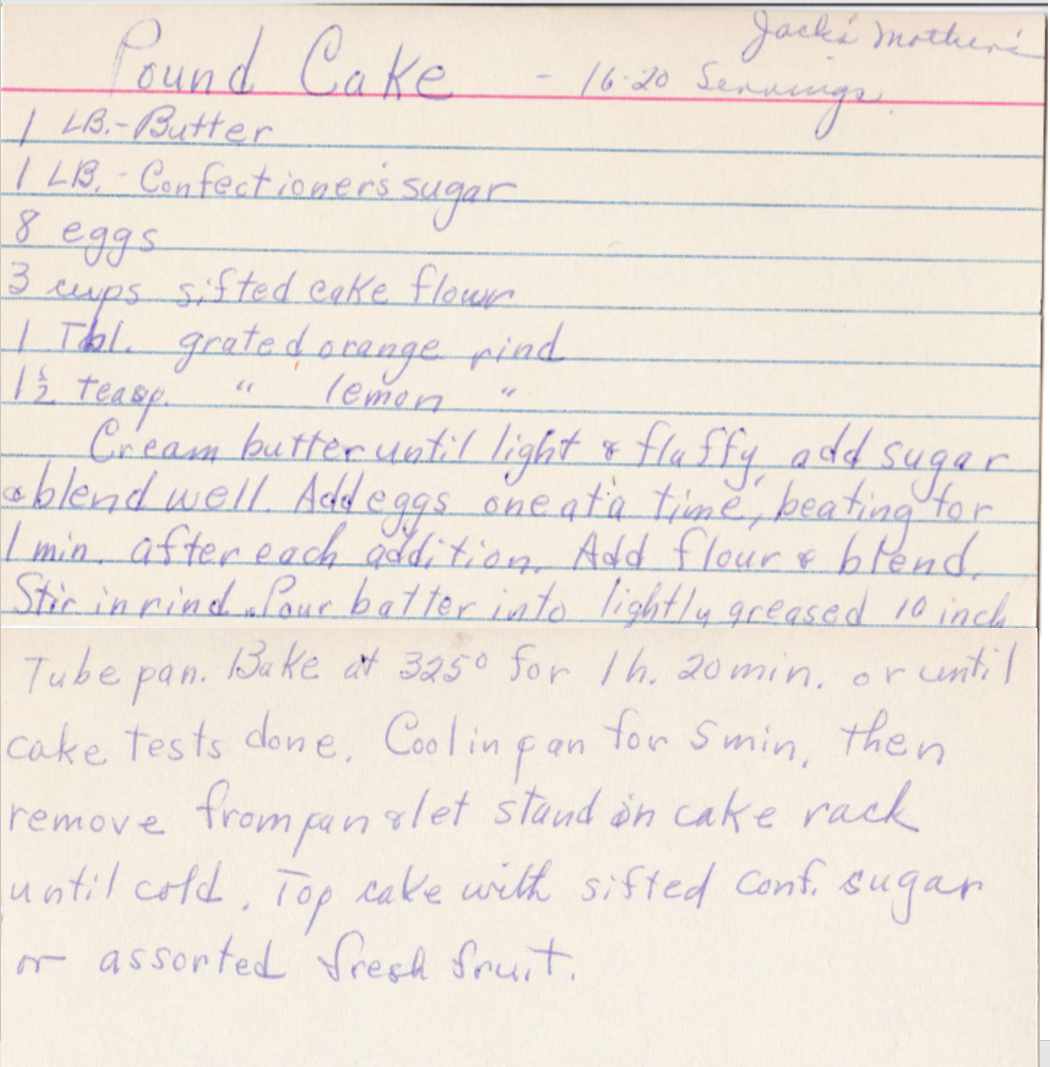 Jack's Mother's
Pound Cake - 16-20 Servings
1 LB.-Butter
1 LB.- Confectioner's sugar
8 eggs
3 cups sifted cake flour
1 Tbl. grated orange rind
1 1/2 teasp. " lemon "
Cream butter until light & fluffy, add sugar
& blend well. Add eggs one at a time, beating for
1 min. after each addition. Add flour & blend.
Stir in rind. Pour batter into lightly greased 10 inch
Tube pan. Bake at 325° for 1 h. 20 min. or until
cake tests done. Cool in pan for 5 min, then
remove from pan & let stand on cake rack
until cold. Top cake with sifted conf. sugar
or assorted fresh fruit.